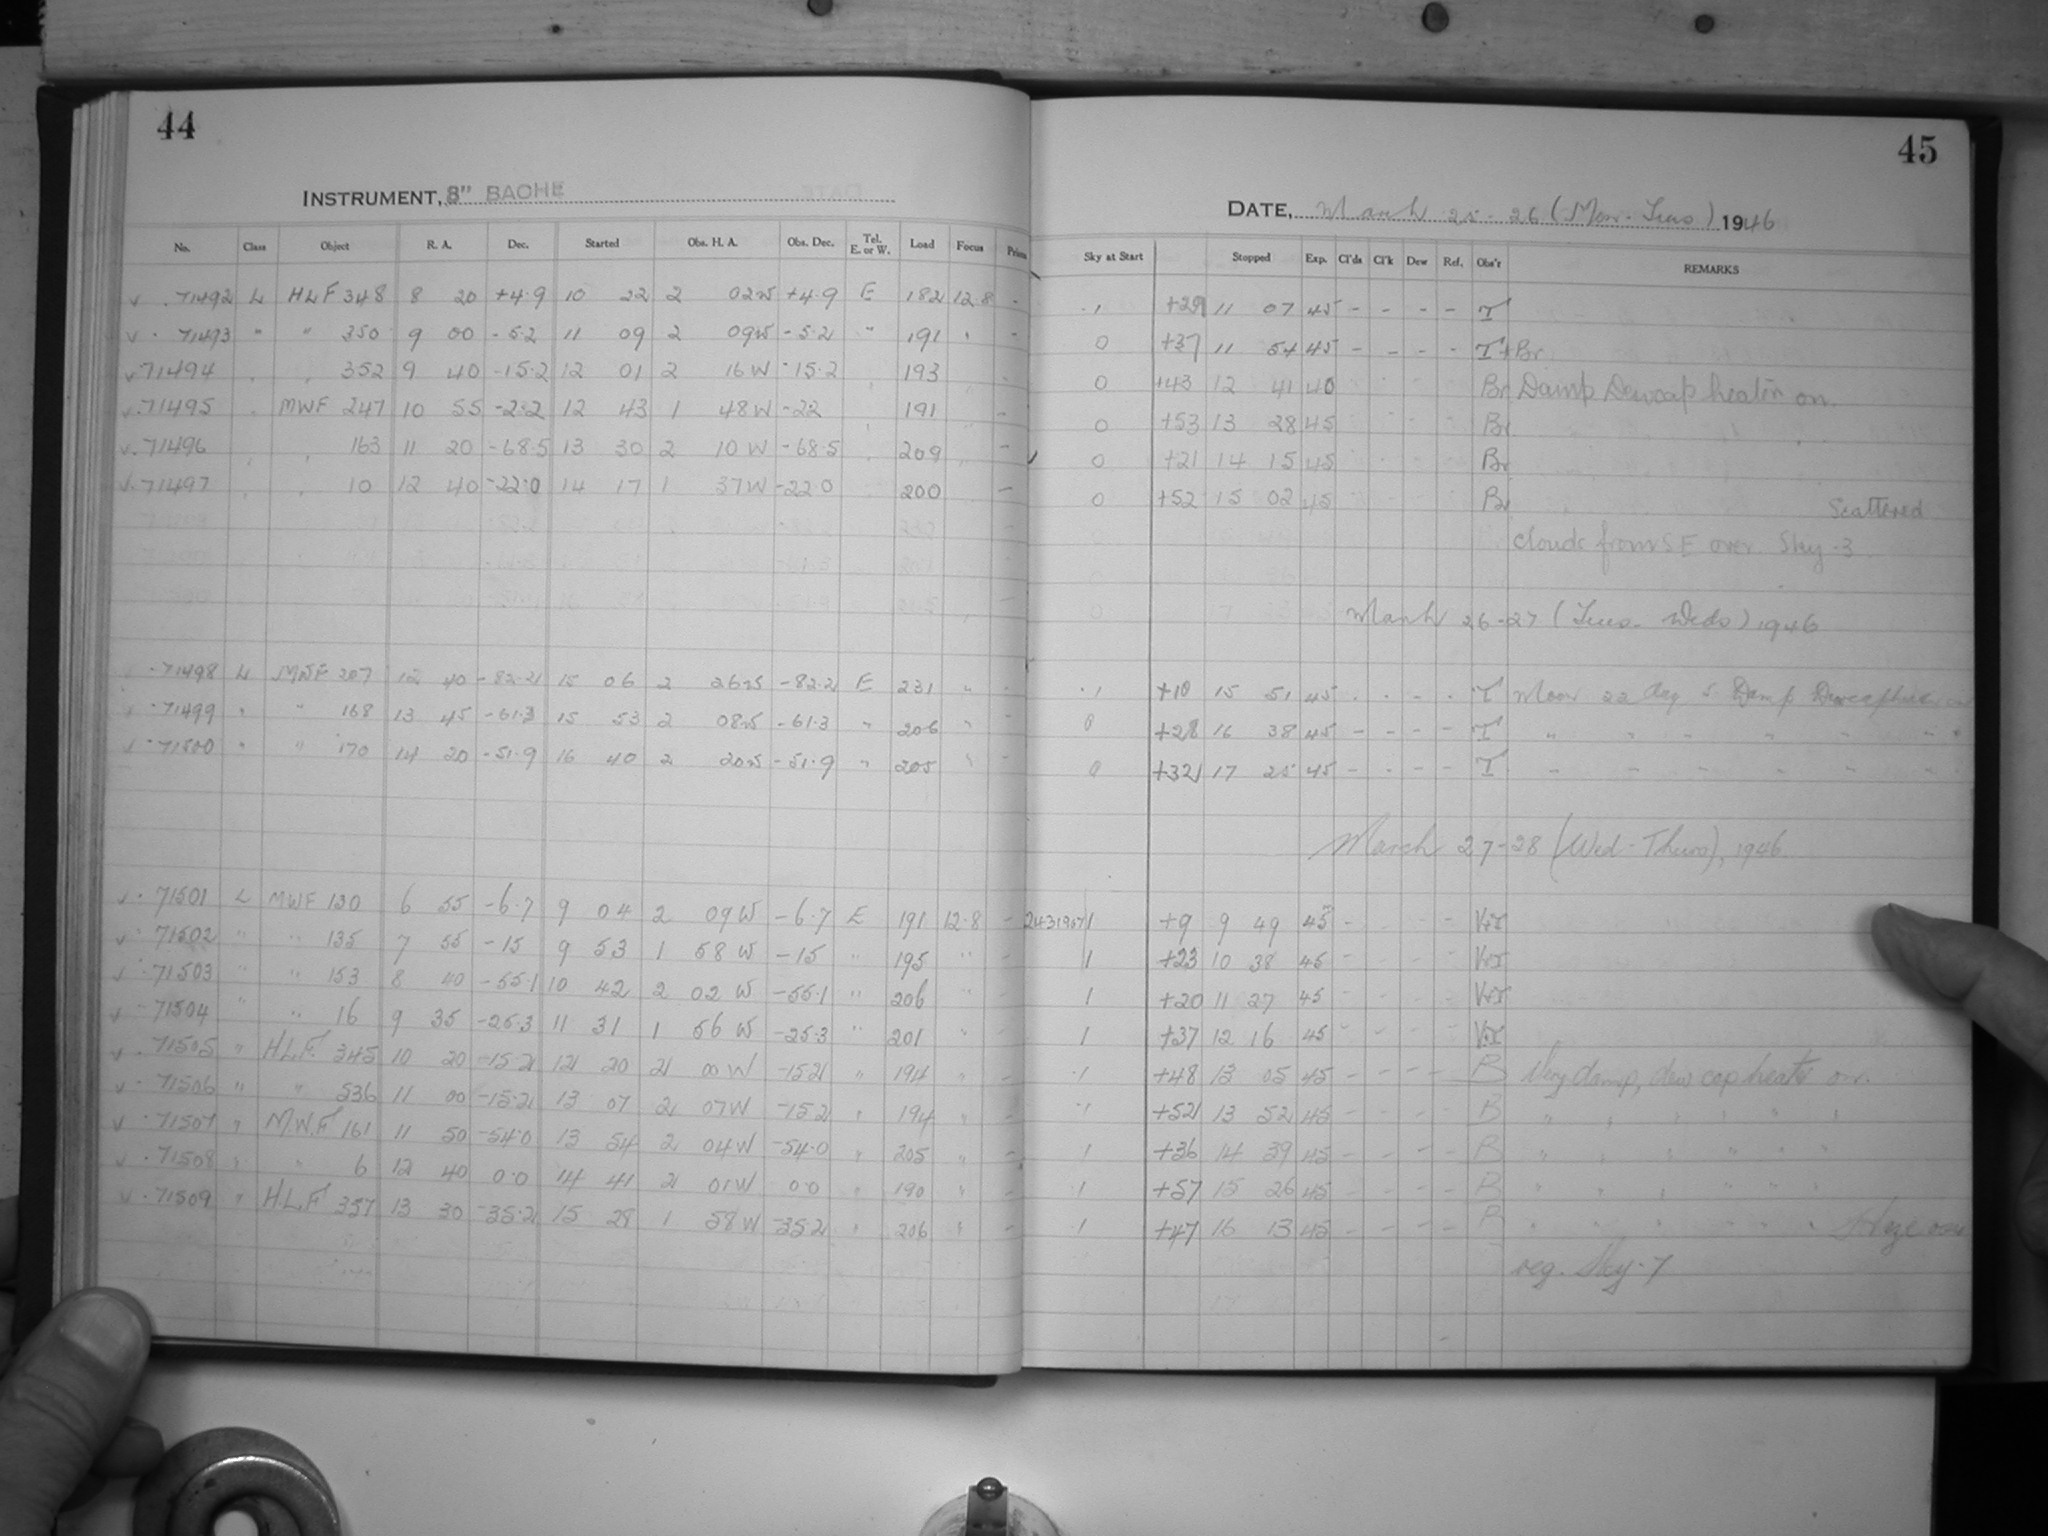 44
INSTRUMENT, 8" BACHE
No. Class Object R. A. Dec. Started Obs. H. A. Obs. Dec. Tel. E. or W. Load Focus Prism
71492 L HLF 348 8 20 +4.9 10 22 2 02W +4.9 E 182 12.8 -
71493 " " 350 9 00 -5.2 11 09 2 09W -5.2 " 191 " -
71494 352 9 40 -15.2 12 01 2 16W -15.2 193
71495 MWF 247 10 55 -2.2 12 43 1 48W -22 191 -
71496 163 11 20 -68.5 13 30 2 10W -68.5 209 -
71497 10 12 40 -22.0 14 17 1 37W -22.0 200 -
71498 L MWF 207 12 40 -82.2 15 06 2 26W -82.2 E 231 " -
71499 " " 168 13 45 -61.3 15 53 2 08W -61.3 " 206 " -
71500 " " 170 14 20 -51.9 16 40 2 20W -51.9 " 205 " -
71501 L MWF 120 6 55 -6.7 9 04 2 09W -6.7 E 191 12.8 -
71502 " " 135 7 55 -15 9 53 1 58W -15 " 195 " -
71503 " " 153 8 40 -55.1 10 42 2 02W -55.1 " 206 " -
71504 " " 16 9 35 -25.3 11 31 1 56W -25.3 " 201 " -
71505 " H.L.F. 345 10 20 -15.2 12 20 2 00W -15.2 " 194 " -
71506 " " 336 11 00 -15.2 13 07 2 07W -15.2 " 194 " -
71507 " M.W.F. 161 11 50 -54.0 13 54 2 04W -54.0 " 205 " -
71508 " " 6 12 40 0.0 14 41 2 01W 0.0 " 190 " -
71509 " H.L.F. 357 13 30 -35.2 15 28 1 58W -35.2 " 206 " -
45
DATE, March 25-26 (Mon-Tues) 1946
Sky at Start Stopped Exp. Cl'ds Cl'k Dew Ref. Obs'r REMARKS
.1 +29 11 07 45 - - - - T
0 +37 11 54 45 - - - - T+Br
0 +43 12 41 40 Br Damp Dewcap heater on.
0 +53 13 28 45 Br
0 +21 14 15 45 Br
0 +52 15 02 45 Br Scattered
clouds from SE over. Sky-3
March 26-27 (Tues-Weds) 1946
.1 +10 15 51 45 T Moon 22 day s Damp Dewcap
0 +28 16 38 45 - - - - T " " " " " "
0 +32 17 25 45 - - - - T " " " " " "
March 27-28 (Wed-Thurs), 1946
1 +9 9 49 45 - - - -
1 +23 10 38 45 - - - -
1 +20 11 27 45 - - - -
1 +37 12 16 45 - - - -
.1 +48 13 05 45 - - - - B Very damp, dew cap heater on.
.1 +52 13 52 45 - - - - B " " " " " "
1 +36 14 39 45 - - - - B " " " " " "
.1 +57 15 26 45 - - - - B " " " " " "
.1 +47 16 13 45 - - - - B " " " " " " Haze over
reg. Sky-7